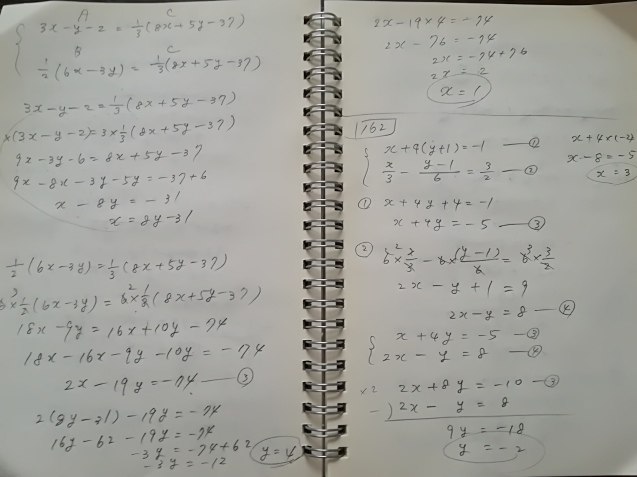 A C
{ 3x-y-2 = 1/3(8x+5y-37)
B C
1/2(6x-3y) = 1/3(8x+5y-37)
3x-y-2 = 1/3(8x+5y-37)
×(3x-y-2) = 3×1/3(8x+5y-37)
9x-3y-6 = 8x+5y-37
9x-8x-3y-5y = -37+6
x-8y = -31
x = 8y-31
1/2(6x-3y) = 1/3(8x+5y-37)
6×1/2 3 (6x-3y) = 6×1/3 2 (8x+5y-37)
18x-9y = 16x+10y-74
18x-16x-9y-10y = -74
2x-19y = -74 — ③
2(8y-31)-19y = -74
16y-62-19y = -74
-3y = -74+62
-3y = -12
y = 4
2x-19×4 = -74
2x-76 = -74
2x = -74+76
2x = 2
x = 1
T62
{ x+4(y+1) = -1 — ①
x/3 - (y-1)/6 = 3/2 — ②
① x+4y+4 = -1
x+4y = -5 — ③
② 6×x/3 2 - 6×(y-1)/6 = 6×3/2 3
2x-y+1 = 9
2x-y = 8 — ④
{ x+4y = -5 — ③
2x-y = 8 — ④
×2 2x+8y = -10 — ③
-) 2x-y = 8
9y = -18
y = -2
x+4×(-2)
x-8 = -5
x = 3